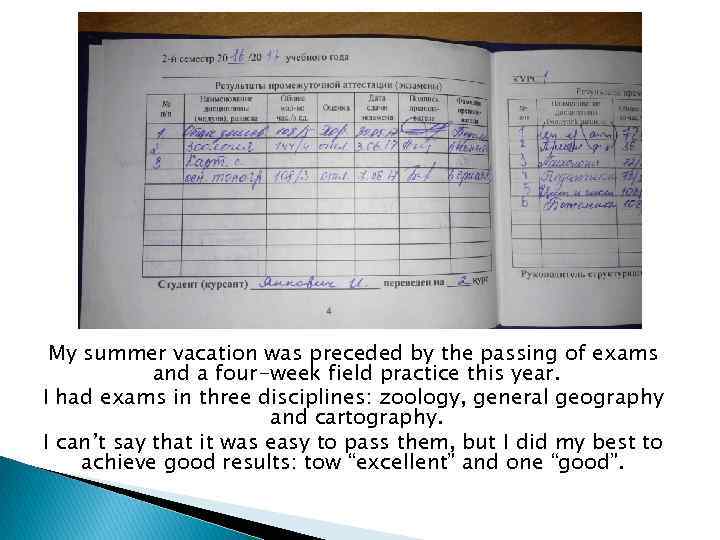 2-й семестр 2016/2017 учебного года
Результаты промежуточной аттестации (экзамены)
№ п/п Наименование дисциплины (модуля), раздела Общее кол-во час./з.ед. Оценка Дата сдачи экзамена Подпись препода-вателя Фамилия препода-вателя
1. 108/3 хор.
2 Зоология 144/4 отл 3.06.17
3 Карт. с
осн. топогр 108/3 отл. 7.06.17
Студент (курсант) Янкович И. переведен на 2 курс
4
КУРС 1
Результаты про
№ п/п Наименование дисциплины (модуля), раздела Общее час./
1 72
2
3
4 Педагогика
5
6 Ботаника
Руководитель структурно
My summer vacation was preceded by the passing of exams
and a four-week field practice this year.
I had exams in three disciplines: zoology, general geography
and cartography.
I can’t say that it was easy to pass them, but I did my best to
achieve good results: tow “excellent” and one “good”.